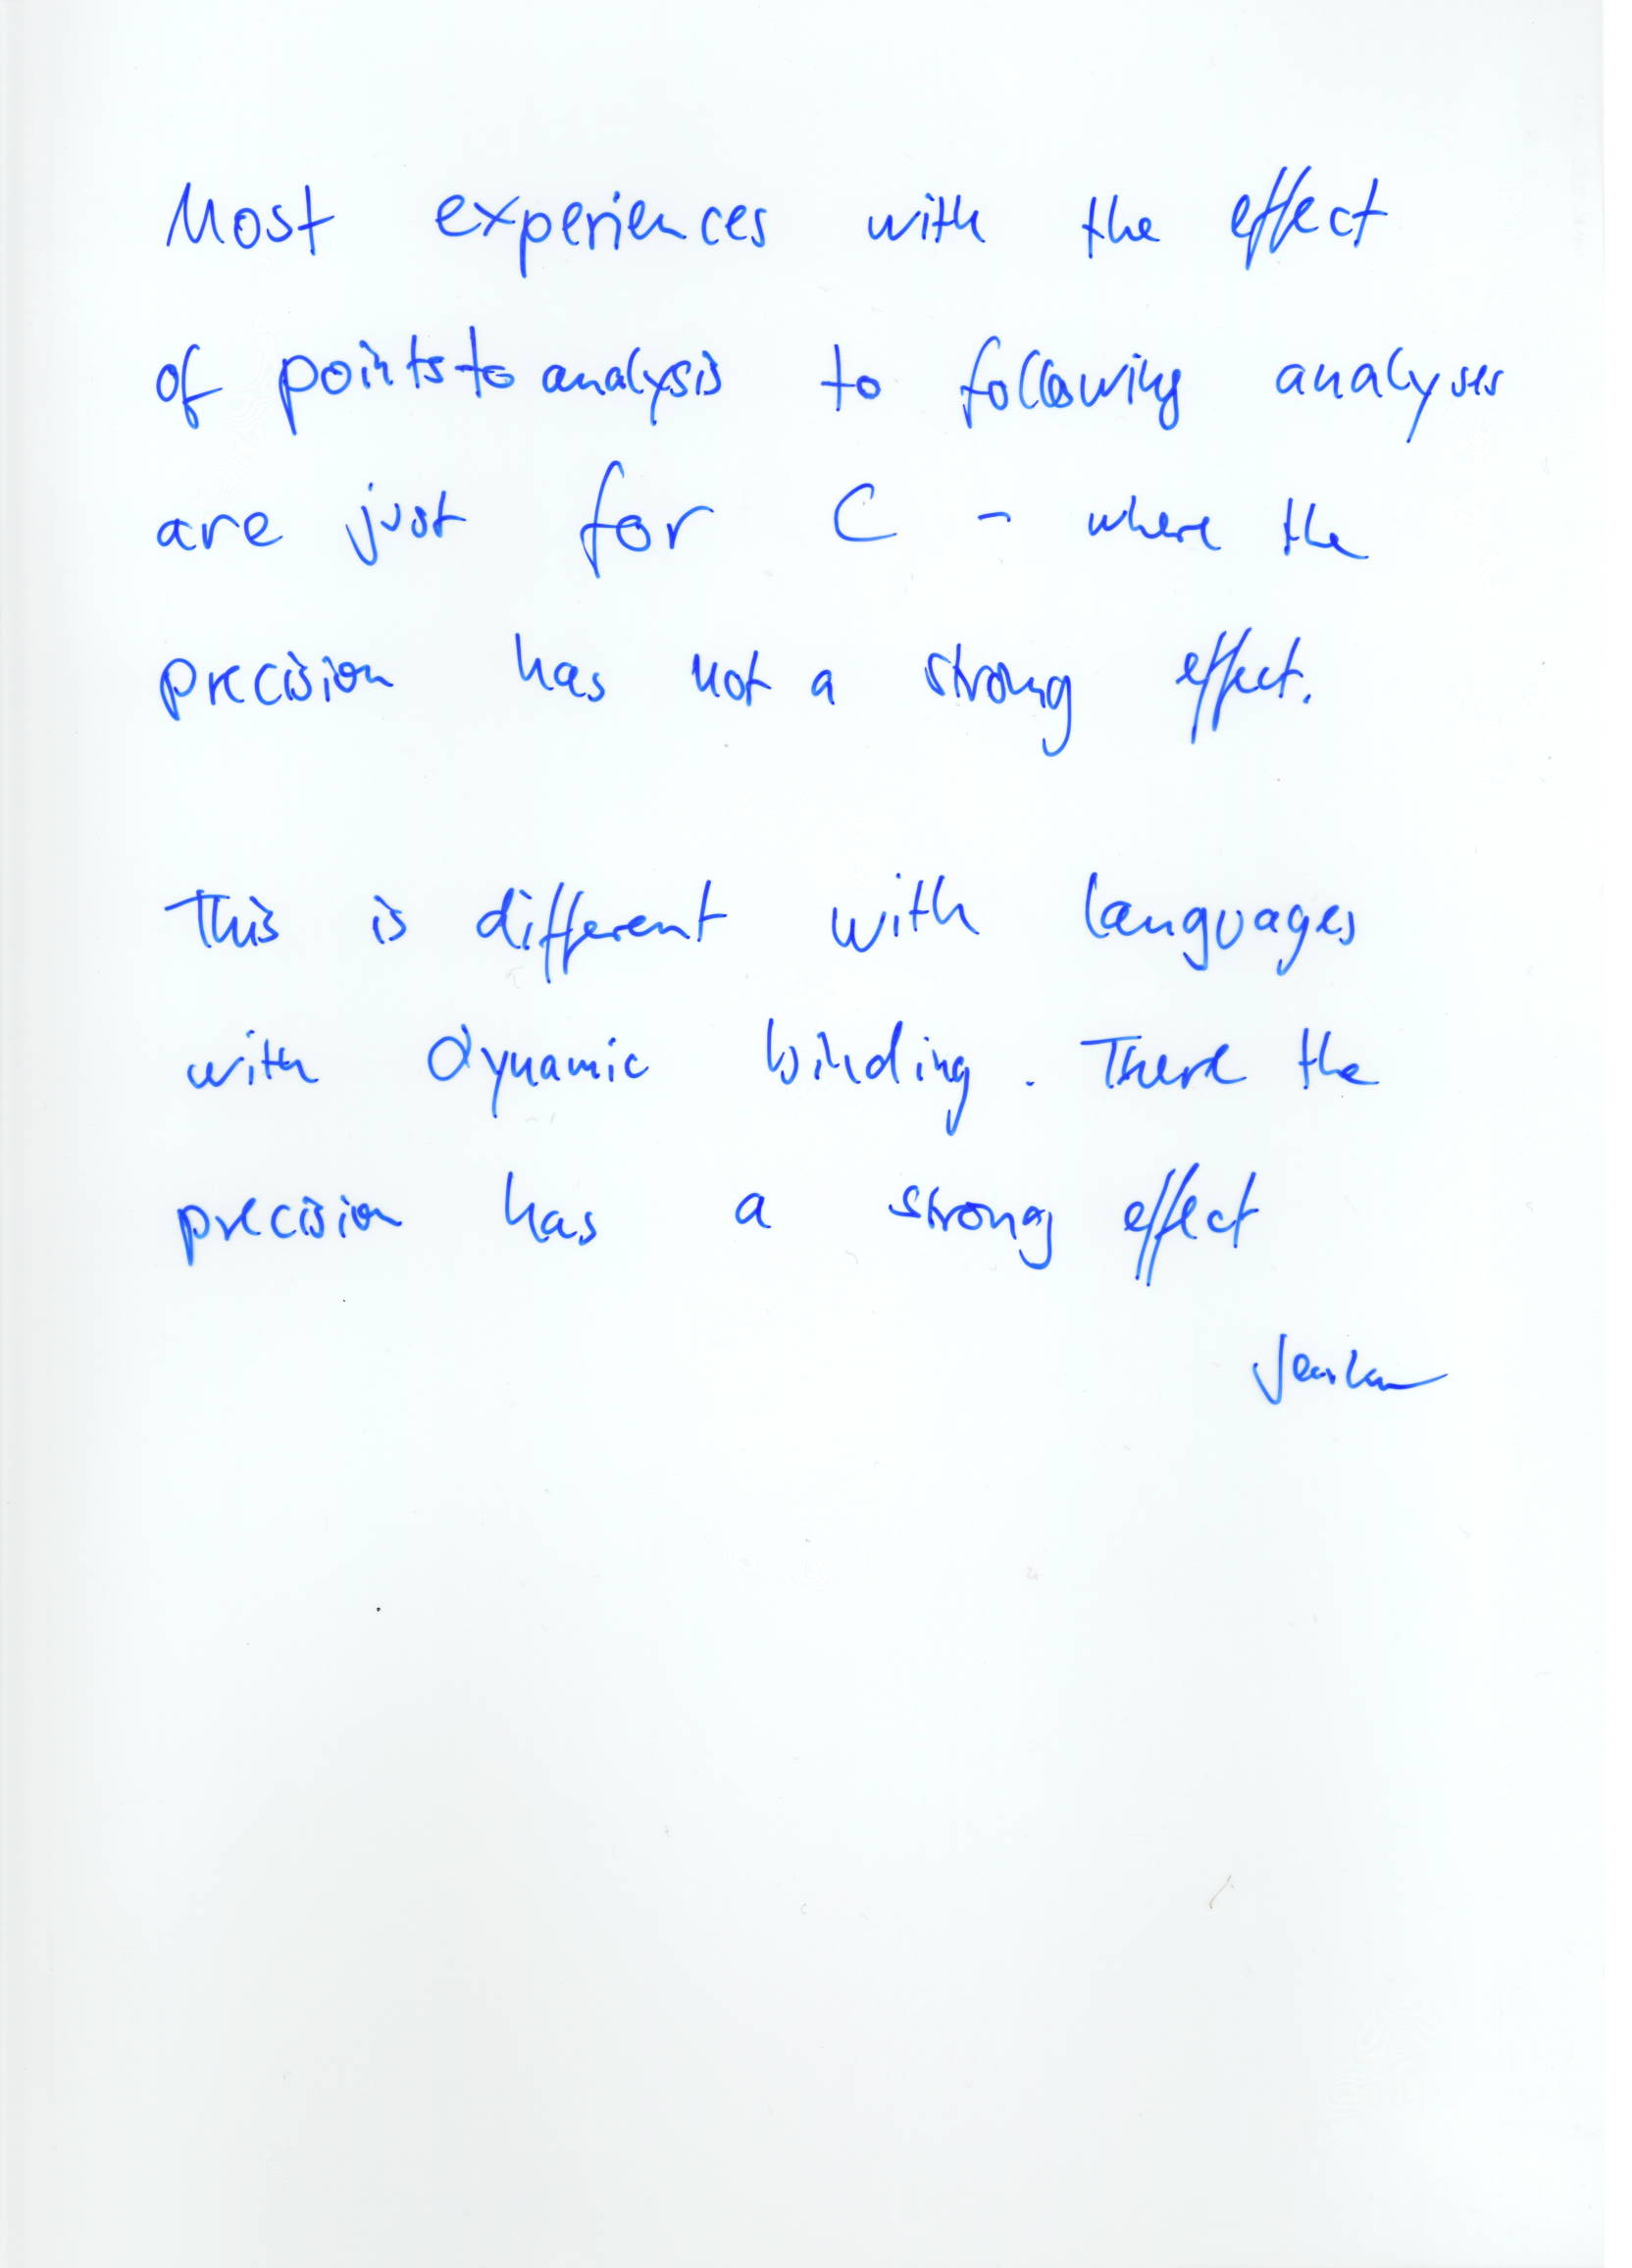 Most experiences with the effect
of points-to analysis to following analyses
are just for C - where the
precision has not a strong effect.
This is different with languages
with dynamic binding. There the
precision has a strong effect